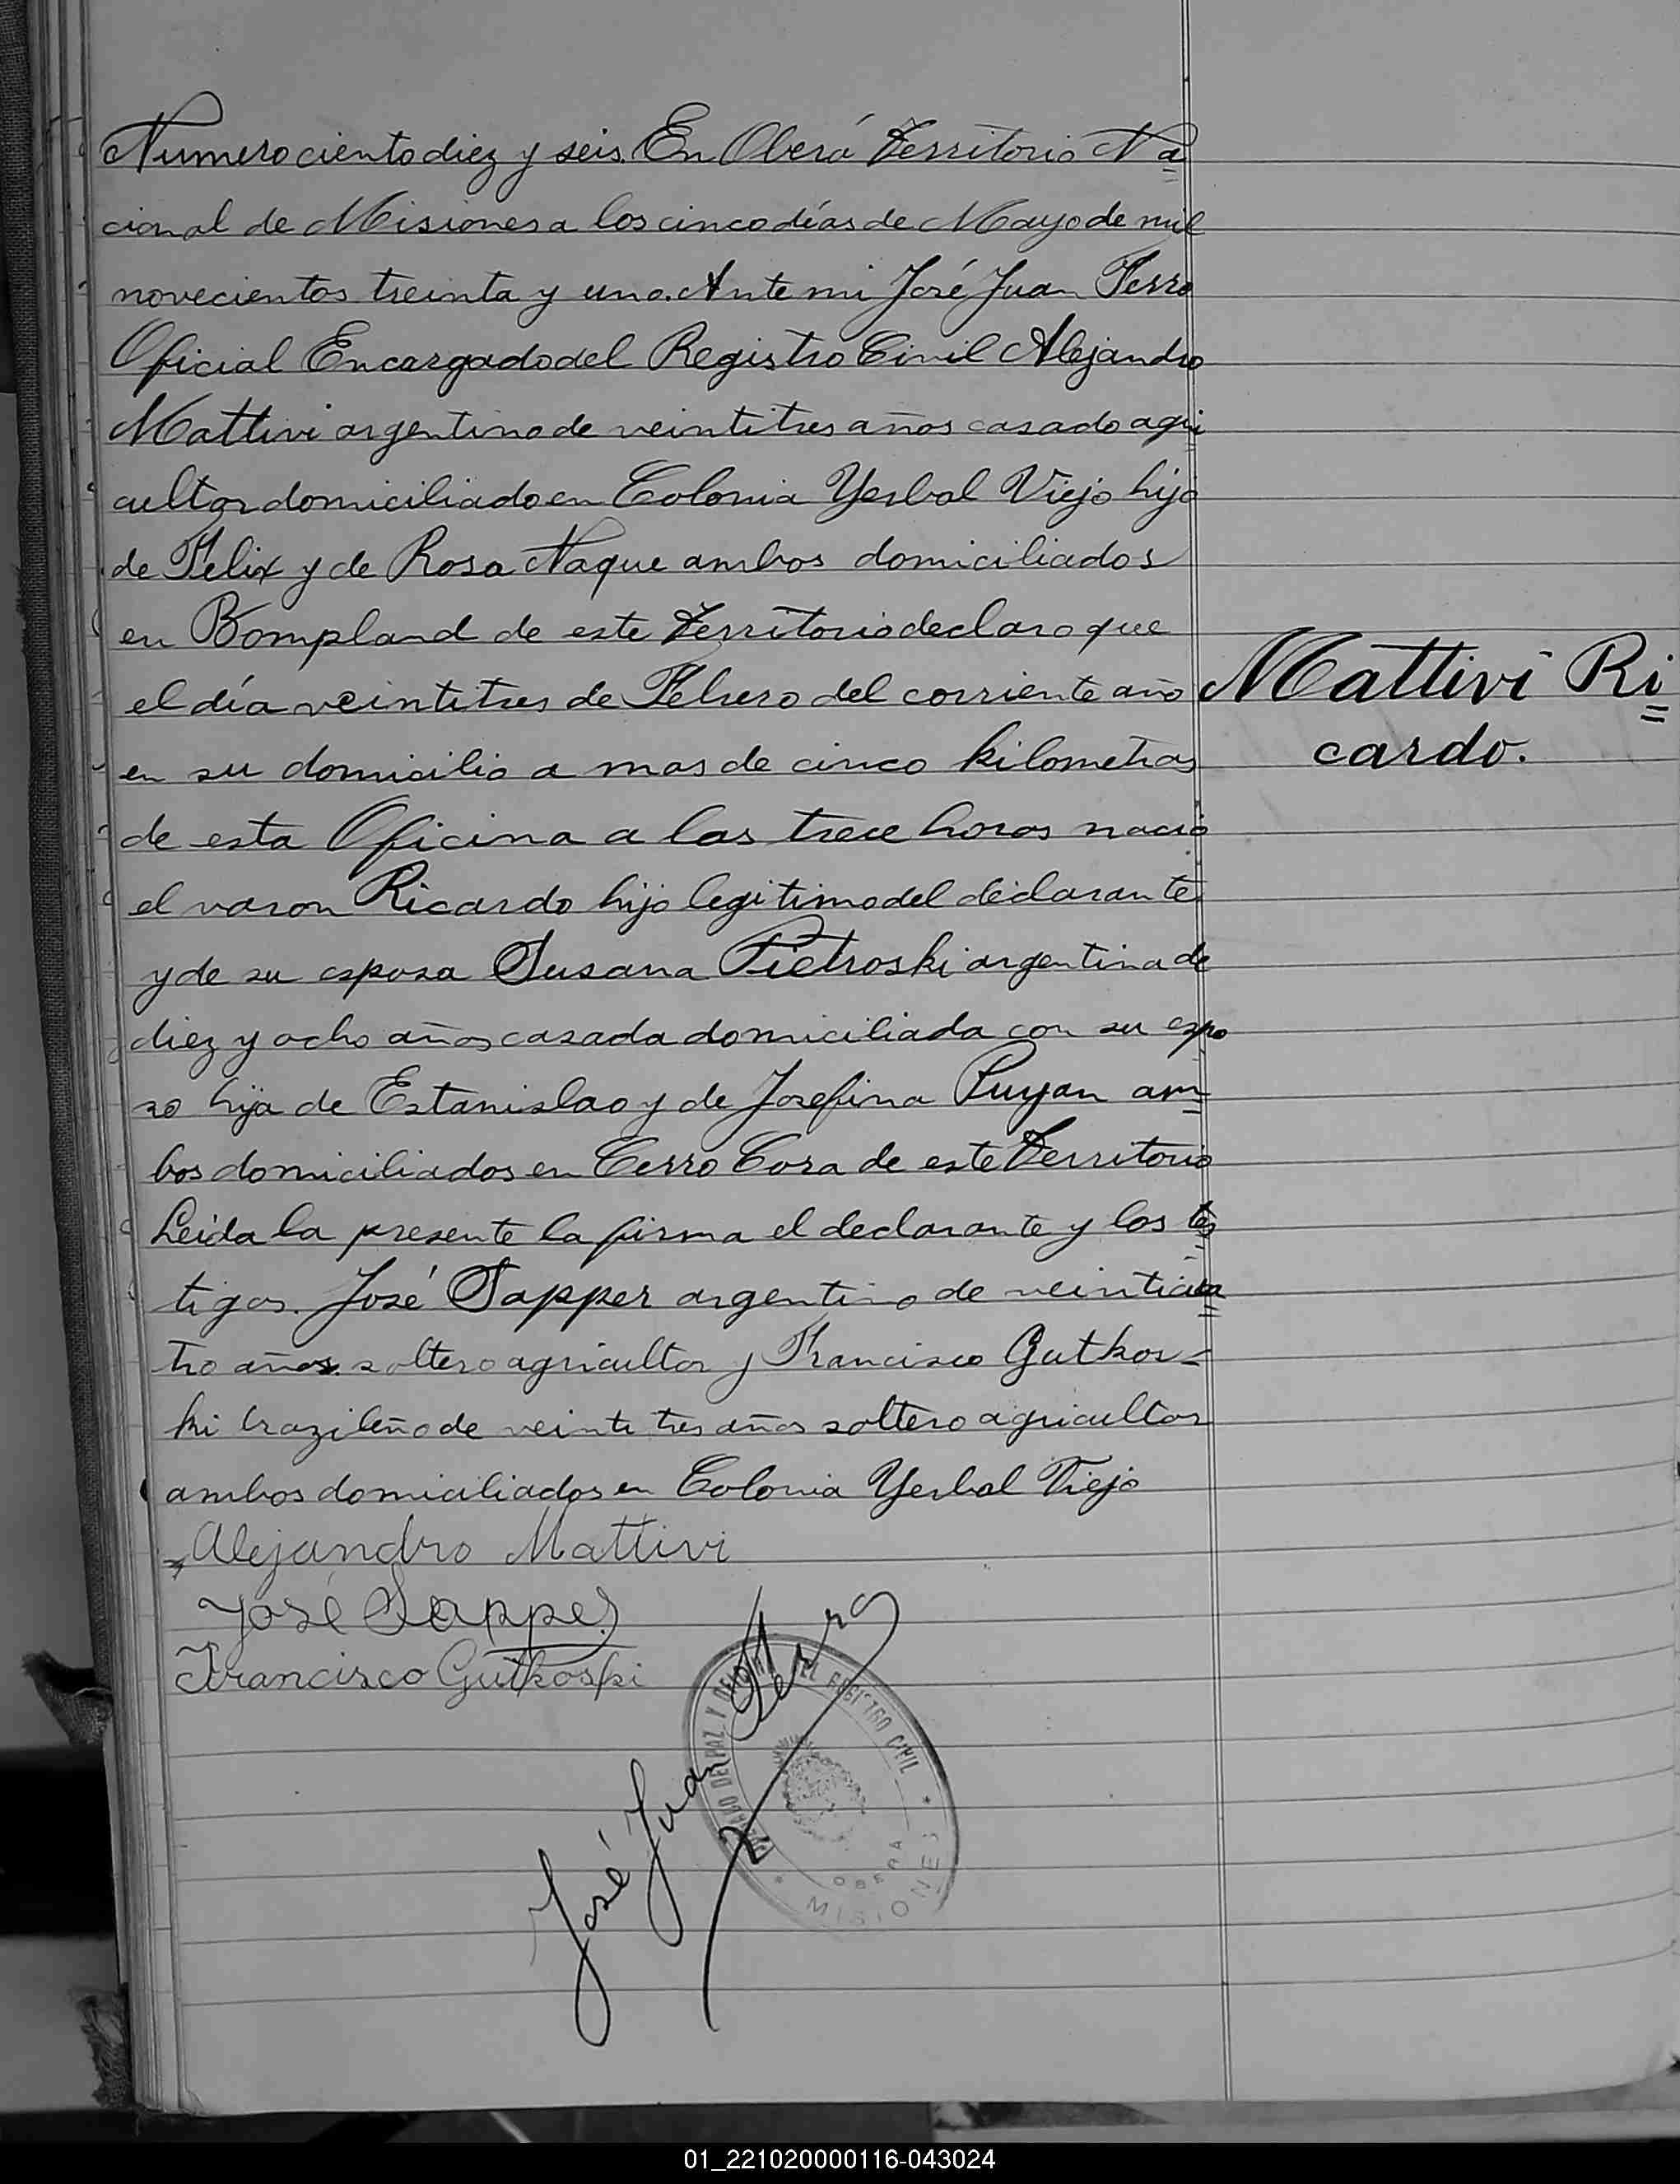 Numero ciento diez y seis. En Oberá Territorio Na=
cional de Misiones a los cinco días de Mayo de mil
novecientos treinta y uno. Ante mi José Juan Ferro
Oficial Encargado del Registro Civil Alejandro
Mattivi argentino de veintitres años casado agri
cultor domiciliado en Colonia Yerbal Viejo hijo
de Felix y de Rosa Naque ambos domiciliados
en Bompland de este Territorio declaro que
el día veintitres de Febrero del corriente año
Mattivi Ri=
en su domicilio a mas de cinco kilometros
cardo.
de esta Oficina a las trece horas nació
el varon Ricardo hijo legitimo del declarante
y de su esposa Susana Pietroski argentina de
diez y ocho años casada domiciliada con su espo
so hija de Estanislao y de Josefina Puyan am=
bos domiciliados en Cerro Cora de este Territorio
Leida la presente la firma el declarante y los tes=
tigos. José Sapper argentino de veinticua=
tro años soltero agricultor y Francisco Gutkos=
ki brazileño de veinte tres años soltero agricultor
ambos domiciliados en Colonia Yerbal Viejo
Alejandro Mattivi
José Sapper
Francisco Gutkoski
José Juan Ferro
JUZGADO DE PAZ Y OFICINA DEL REGISTRO CIVIL
OBERA
* MISIONES *
01_221020000116-043024